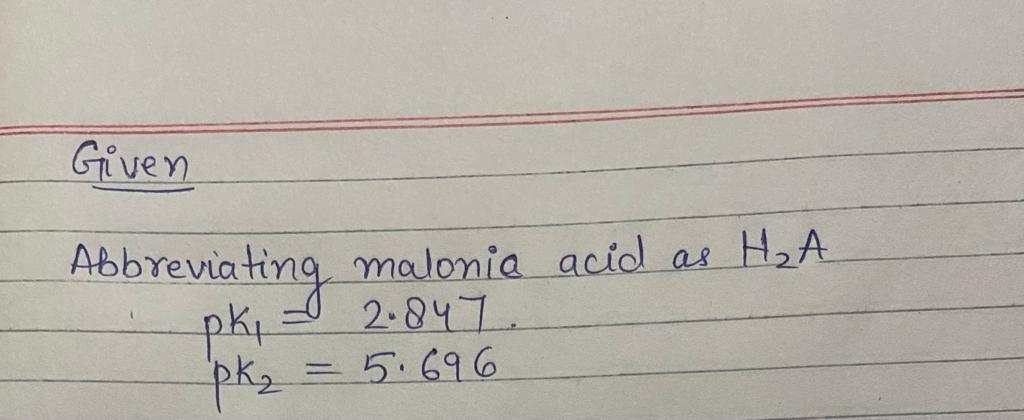 Given
Abbreviating malonic acid as H₂A
pK₁ = 2.847.
pK₂ = 5.696